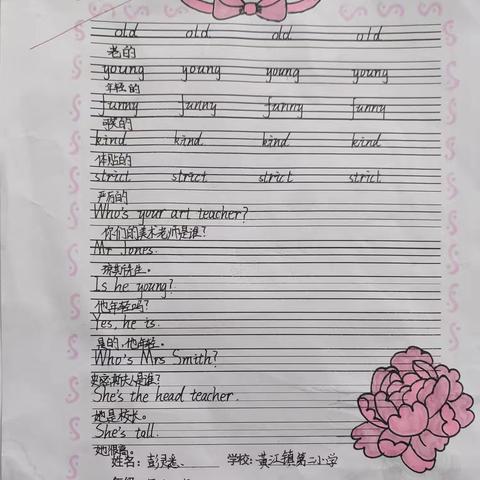 old old old old
老的
young young young young
年轻的
funny funny funny funny
kind kind kind kind
体贴的
strict strict strict strict
严厉的
Who's your art teacher?
你们的美术老师是谁?
Mr Jones.
琼斯先生。
Is he young?
他年轻吗?
Yes, he is.
是的,他年轻。
Who's Mrs Smith?
史密斯夫人是谁?
She's the head teacher.
她是校长。
She's tall.
她很高。
姓名: 彭 学校: 黄江镇第二小学